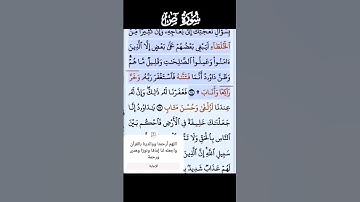 سورة ص
بِسُؤَالِ نَعْجَتِكَ إِلَىٰ نِعَاجِهِۦ ۖ وَإِنَّ كَثِيرًا مِّنَ
ٱلْخُلَطَآءِ لَيَبْغِى بَعْضُهُمْ عَلَىٰ بَعْضٍ إِلَّا ٱلَّذِينَ
ءَامَنُوا۟ وَعَمِلُوا۟ ٱلصَّـٰلِحَـٰتِ وَقَلِيلٌ مَّا هُمْ ۗ
وَظَنَّ دَاوُۥدُ أَنَّمَا فَتَنَّـٰهُ فَٱسْتَغْفَرَ رَبَّهُۥ وَخَرَّ
رَاكِعًا وَأَنَابَ ۩ ٢٤ فَغَفَرْنَا لَهُۥ ذَٰلِكَ ۖ وَإِنَّ لَهُۥ
عِندَنَا لَزُلْفَىٰ وَحُسْنَ مَـَٔابٍ ٢٥ يَـٰدَاوُۥدُ إِنَّا
جَعَلْنَـٰكَ خَلِيفَةً فِى ٱلْأَرْضِ فَٱحْكُم بَيْنَ
ٱلنَّاسِ بِٱلْحَقِّ وَلَا
سَبِيلِ ٱللَّهِ ۚ إِنَّ ٱلَّذِينَ
لَهُمْ عَذَابٌ شَدِيدٌۢ
اللهم ارحمنا ووالدينا بالقرآن
واجعله لنا إماما ونورا وهدى
ورحمة